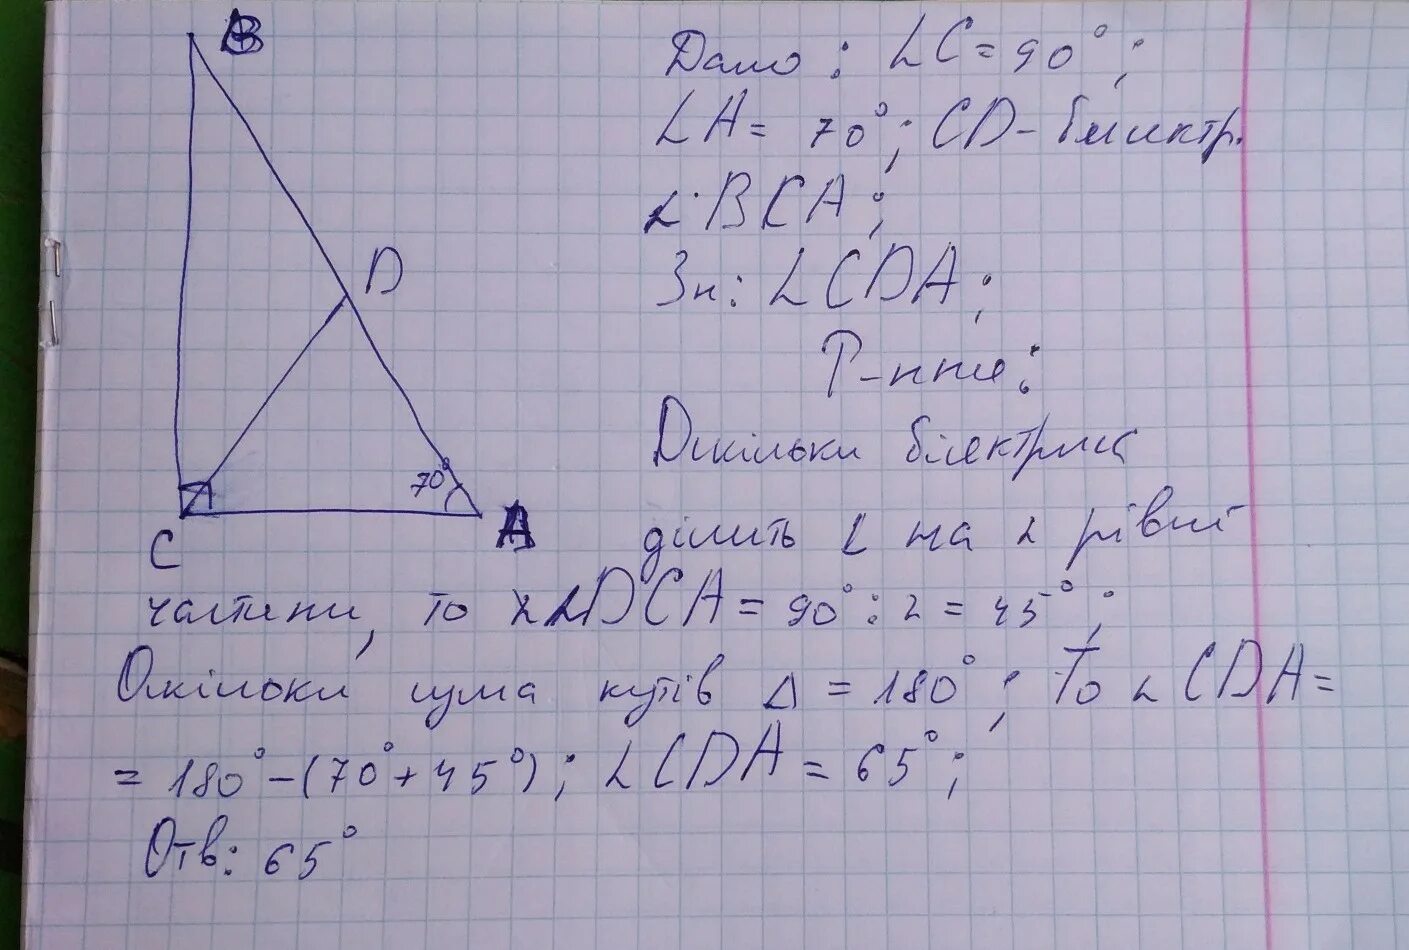 B
D
70°
C
A
Дано: ∠C = 90°;
∠A = 70°; CD - бісектр.
∠BCA;
Зн: ∠CDA;
Р-ння:
Оскільки бісектриса
ділить ∠ на 2 рівні
частини, то ∠DCA = 90° : 2 = 45°;
Оскільки сума кутів Δ = 180°; То ∠CDA =
= 180° - (70° + 45°); ∠CDA = 65°;
Отв: 65°